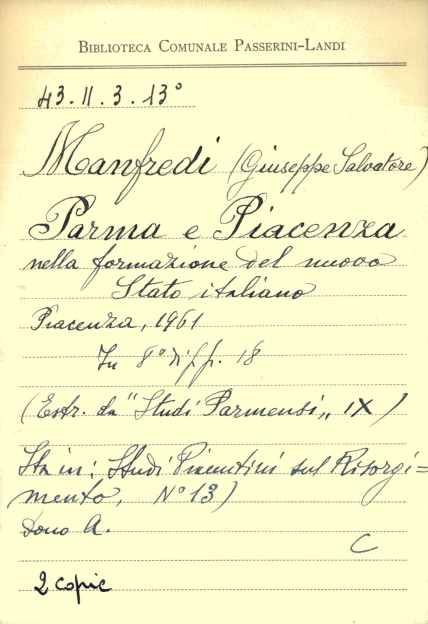 BIBLIOTECA COMUNALE PASSERINI-LANDI
43.II.3.13°
Manfredi (Giuseppe Salvatore)
Parma e Piacenza
nella formazione del nuovo
Stato italiano
Piacenza, 1961
In 8° di pp. 18
(Estr. da "Studi Parmensi„ IX)
Sta in: Studi Piacentini sul Risorgi=
mento, N° 13)
Dono A.
C
2 copie